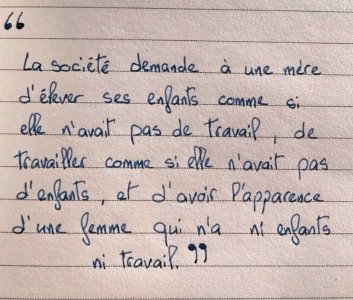 “
La société demande à une mère
d'élever ses enfants comme si
elle n'avait pas de travail, de
travailler comme si elle n'avait pas
d'enfants, et d'avoir l'apparence
d'une femme qui n'a ni enfants
ni travail. ”